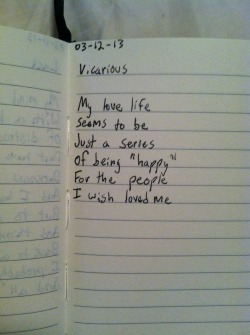 03-12-13
Vicarious
My love life
Seems to be
Just a series
Of being "happy"
For the people
I wish loved me